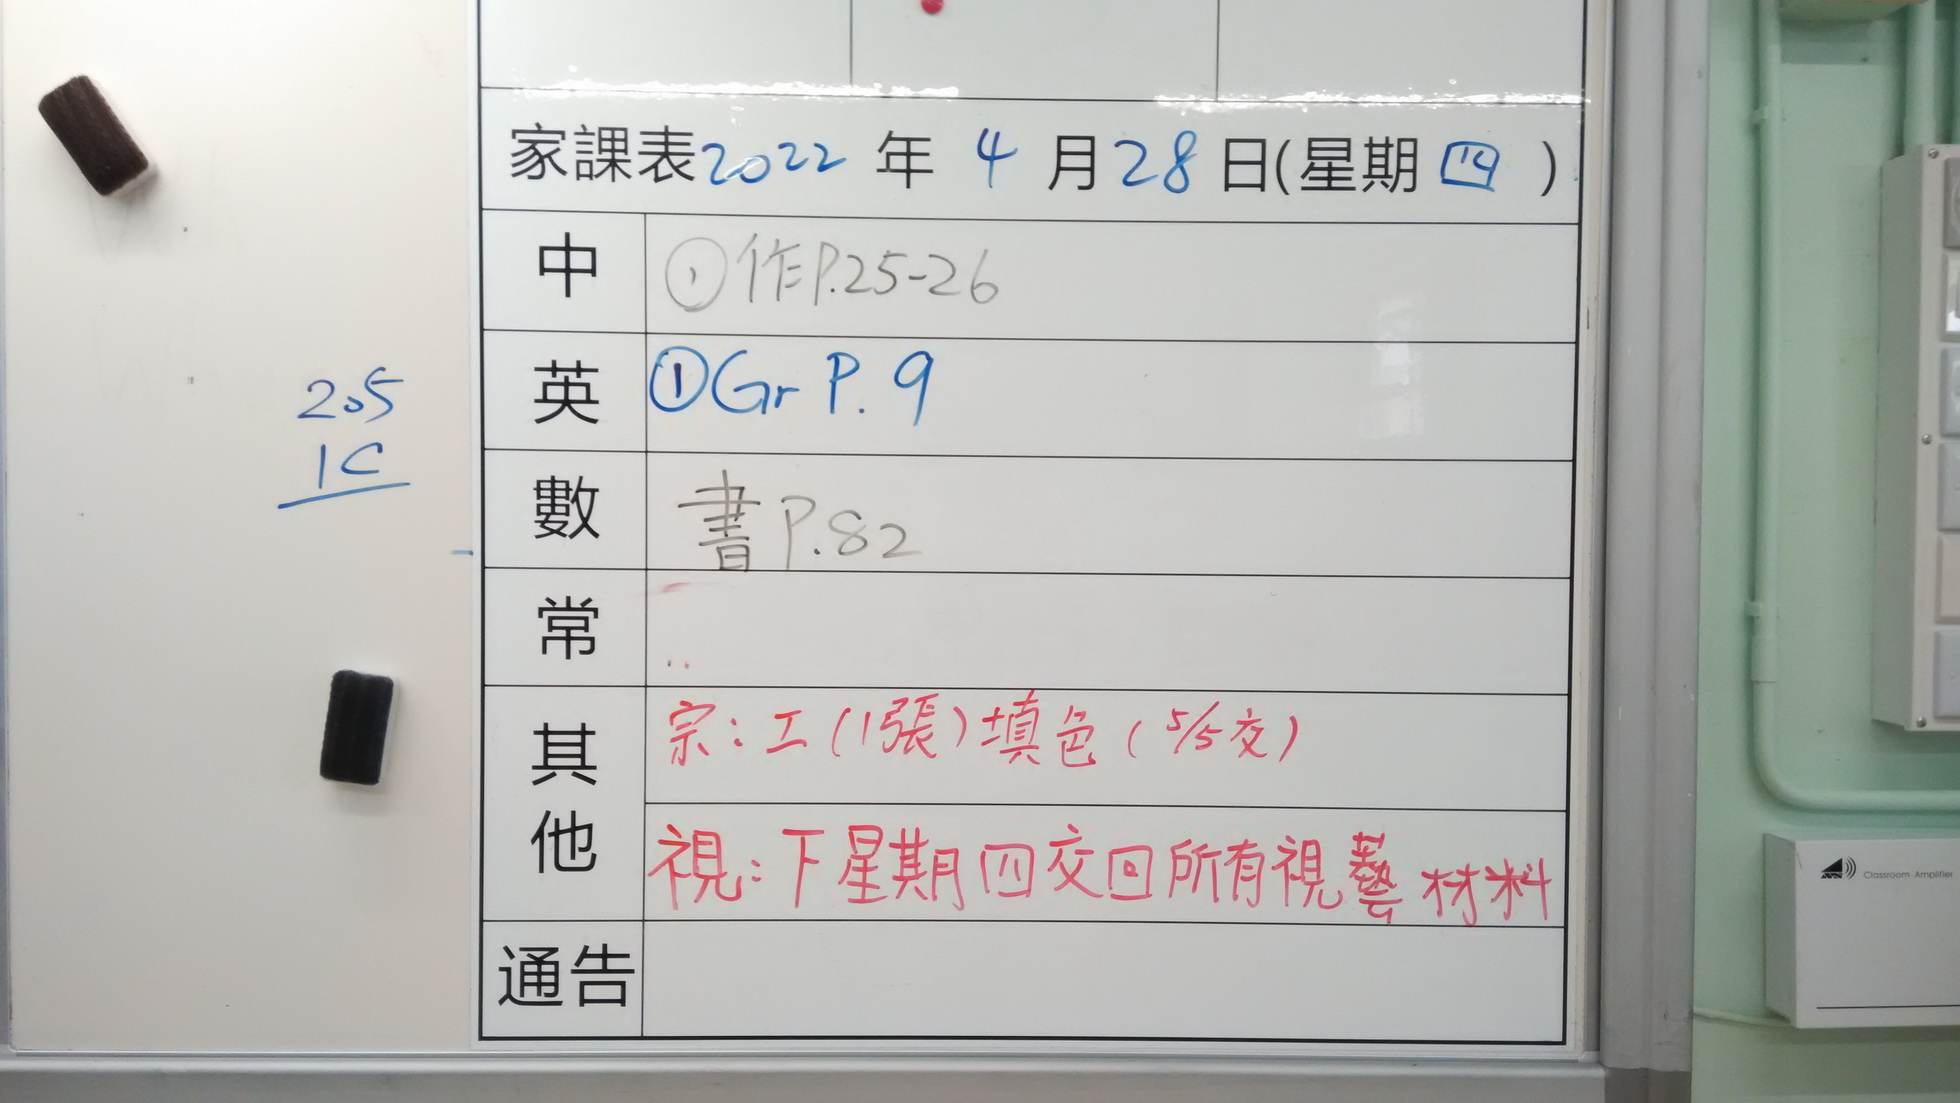 家課表2022年4月28日(星期四)
中 ①作P.25-26
英 ①Gr P.9
數 書P.82
常
其他 宗：工(1張)填色(5/5交)
視：下星期四交回所有視藝材料
通告
205
1C
Classroom Amplifier